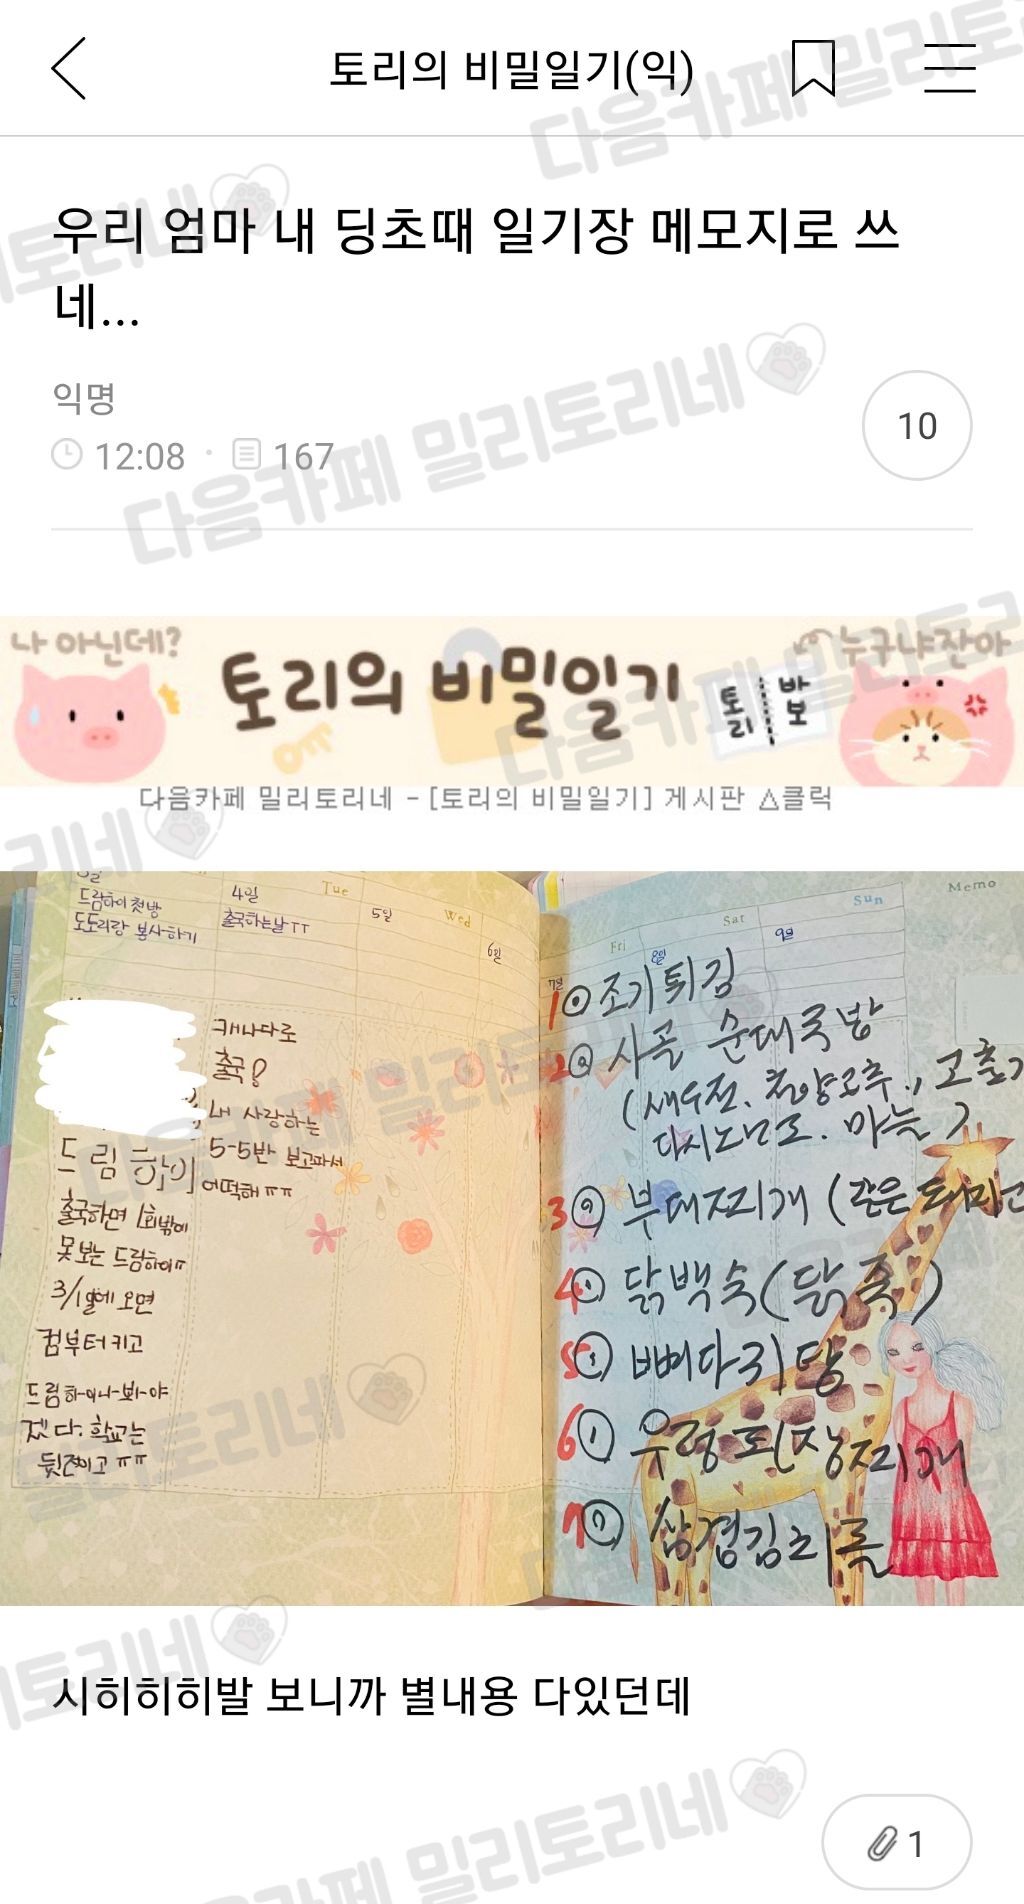 토리의 비밀일기(익)
우리 엄마 내 딩초때 일기장 메모지로 쓰
네...
익명
10
12:08 · 167
나 아닌데?
토리의 비밀일기
토리 바보
누구냐잔아
다음카페 밀리토리네 - [토리의 비밀일기] 게시판 △클릭
드림하이 첫방
도토리랑 봉사하기
4일
Tue
출국하는날ㅜㅜ
5일
Wed
6일
캐나다로
출국?
내 사랑하는
5-5반 보고파서
어떡해ㅠㅠ
드림하이
출국하면 1회밖에
못보는 드림하이ㅠ
3/1일에 오면
컴부터키고
드림하-이나-봐-야
겠다. 학교는
뒷전이고 ㅠㅠ
7일
Fri
8일
Sat
9일
Sun
Memo
1 조기튀김
2 사골 순대국밥
(새우젓. 청양고추.,
다시노난도. 마늘)
3 부대찌개 (
4 닭백숙(닭죽)
5 뼈다귀탕
6 우렁된장찌개
7 삼겹김치롤
시히히히발 보니까 별내용 다있던데
1
다음카페 밀리토리네